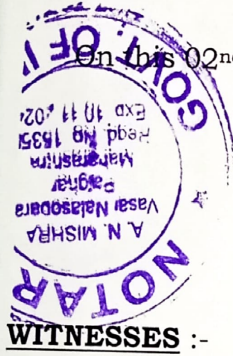 On this 02nd
NOTAR
GOVT. OF I
A. N. MISHRA
Vasai Nalasopara
Palghar
Maharashtra
Regd. No 1535
Exp. 10 11
WITNESSES :-